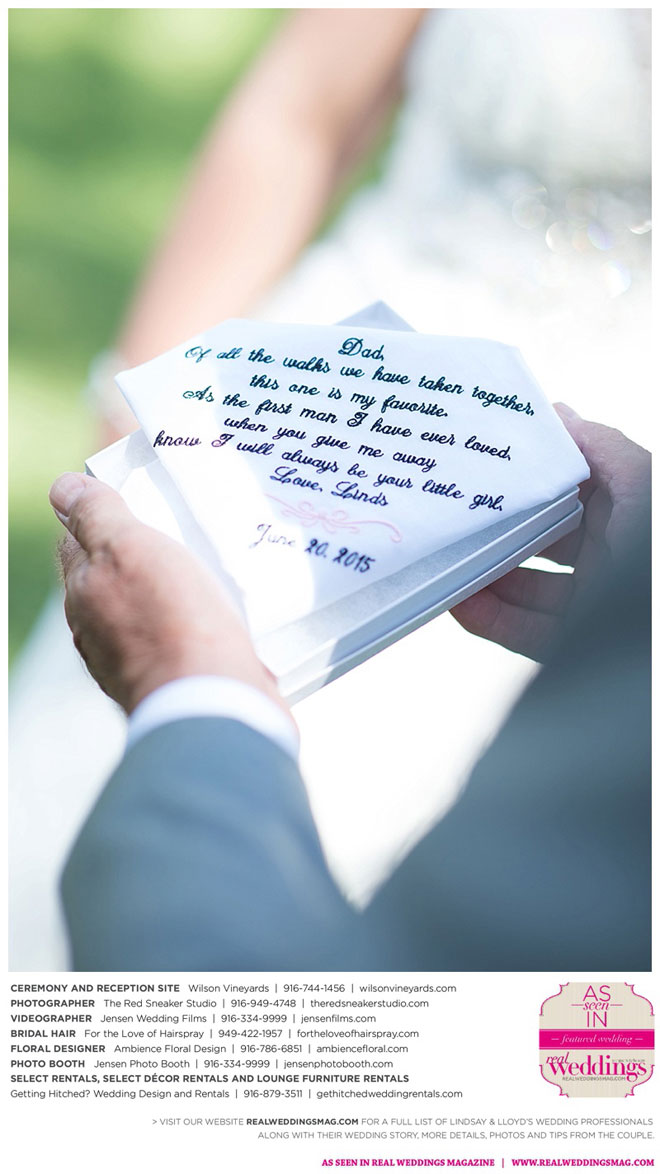 Dad,
Of all the walks we have taken together,
this one is my favorite.
As the first man I have ever loved,
when you give me away
know I will always be your little girl.
Love, Linds
June 20, 2015
CEREMONY AND RECEPTION SITE Wilson Vineyards | 916-744-1456 | wilsonvineyards.com
PHOTOGRAPHER The Red Sneaker Studio | 916-949-4748 | theredsneakerstudio.com
VIDEOGRAPHER Jensen Wedding Films | 916-334-9999 | jensenfilms.com
BRIDAL HAIR For the Love of Hairspray | 949-422-1957 | fortheloveofhairspray.com
FLORAL DESIGNER Ambience Floral Design | 916-786-6851 | ambiencefloral.com
PHOTO BOOTH Jensen Photo Booth | 916-334-9999 | jensenphotobooth.com
SELECT RENTALS, SELECT DÉCOR RENTALS AND LOUNGE FURNITURE RENTALS
Getting Hitched? Wedding Design and Rentals | 916-879-3511 | gethitchedweddingrentals.com
AS
seen
IN
featured wedding
real
weddings
REALWEDDINGSMAG.COM
> VISIT OUR WEBSITE REALWEDDINGSMAG.COM FOR A FULL LIST OF LINDSAY & LLOYD'S WEDDING PROFESSIONALS
ALONG WITH THEIR WEDDING STORY, MORE DETAILS, PHOTOS AND TIPS FROM THE COUPLE.
AS SEEN IN REAL WEDDINGS MAGAZINE | WWW.REALWEDDINGSMAG.COM